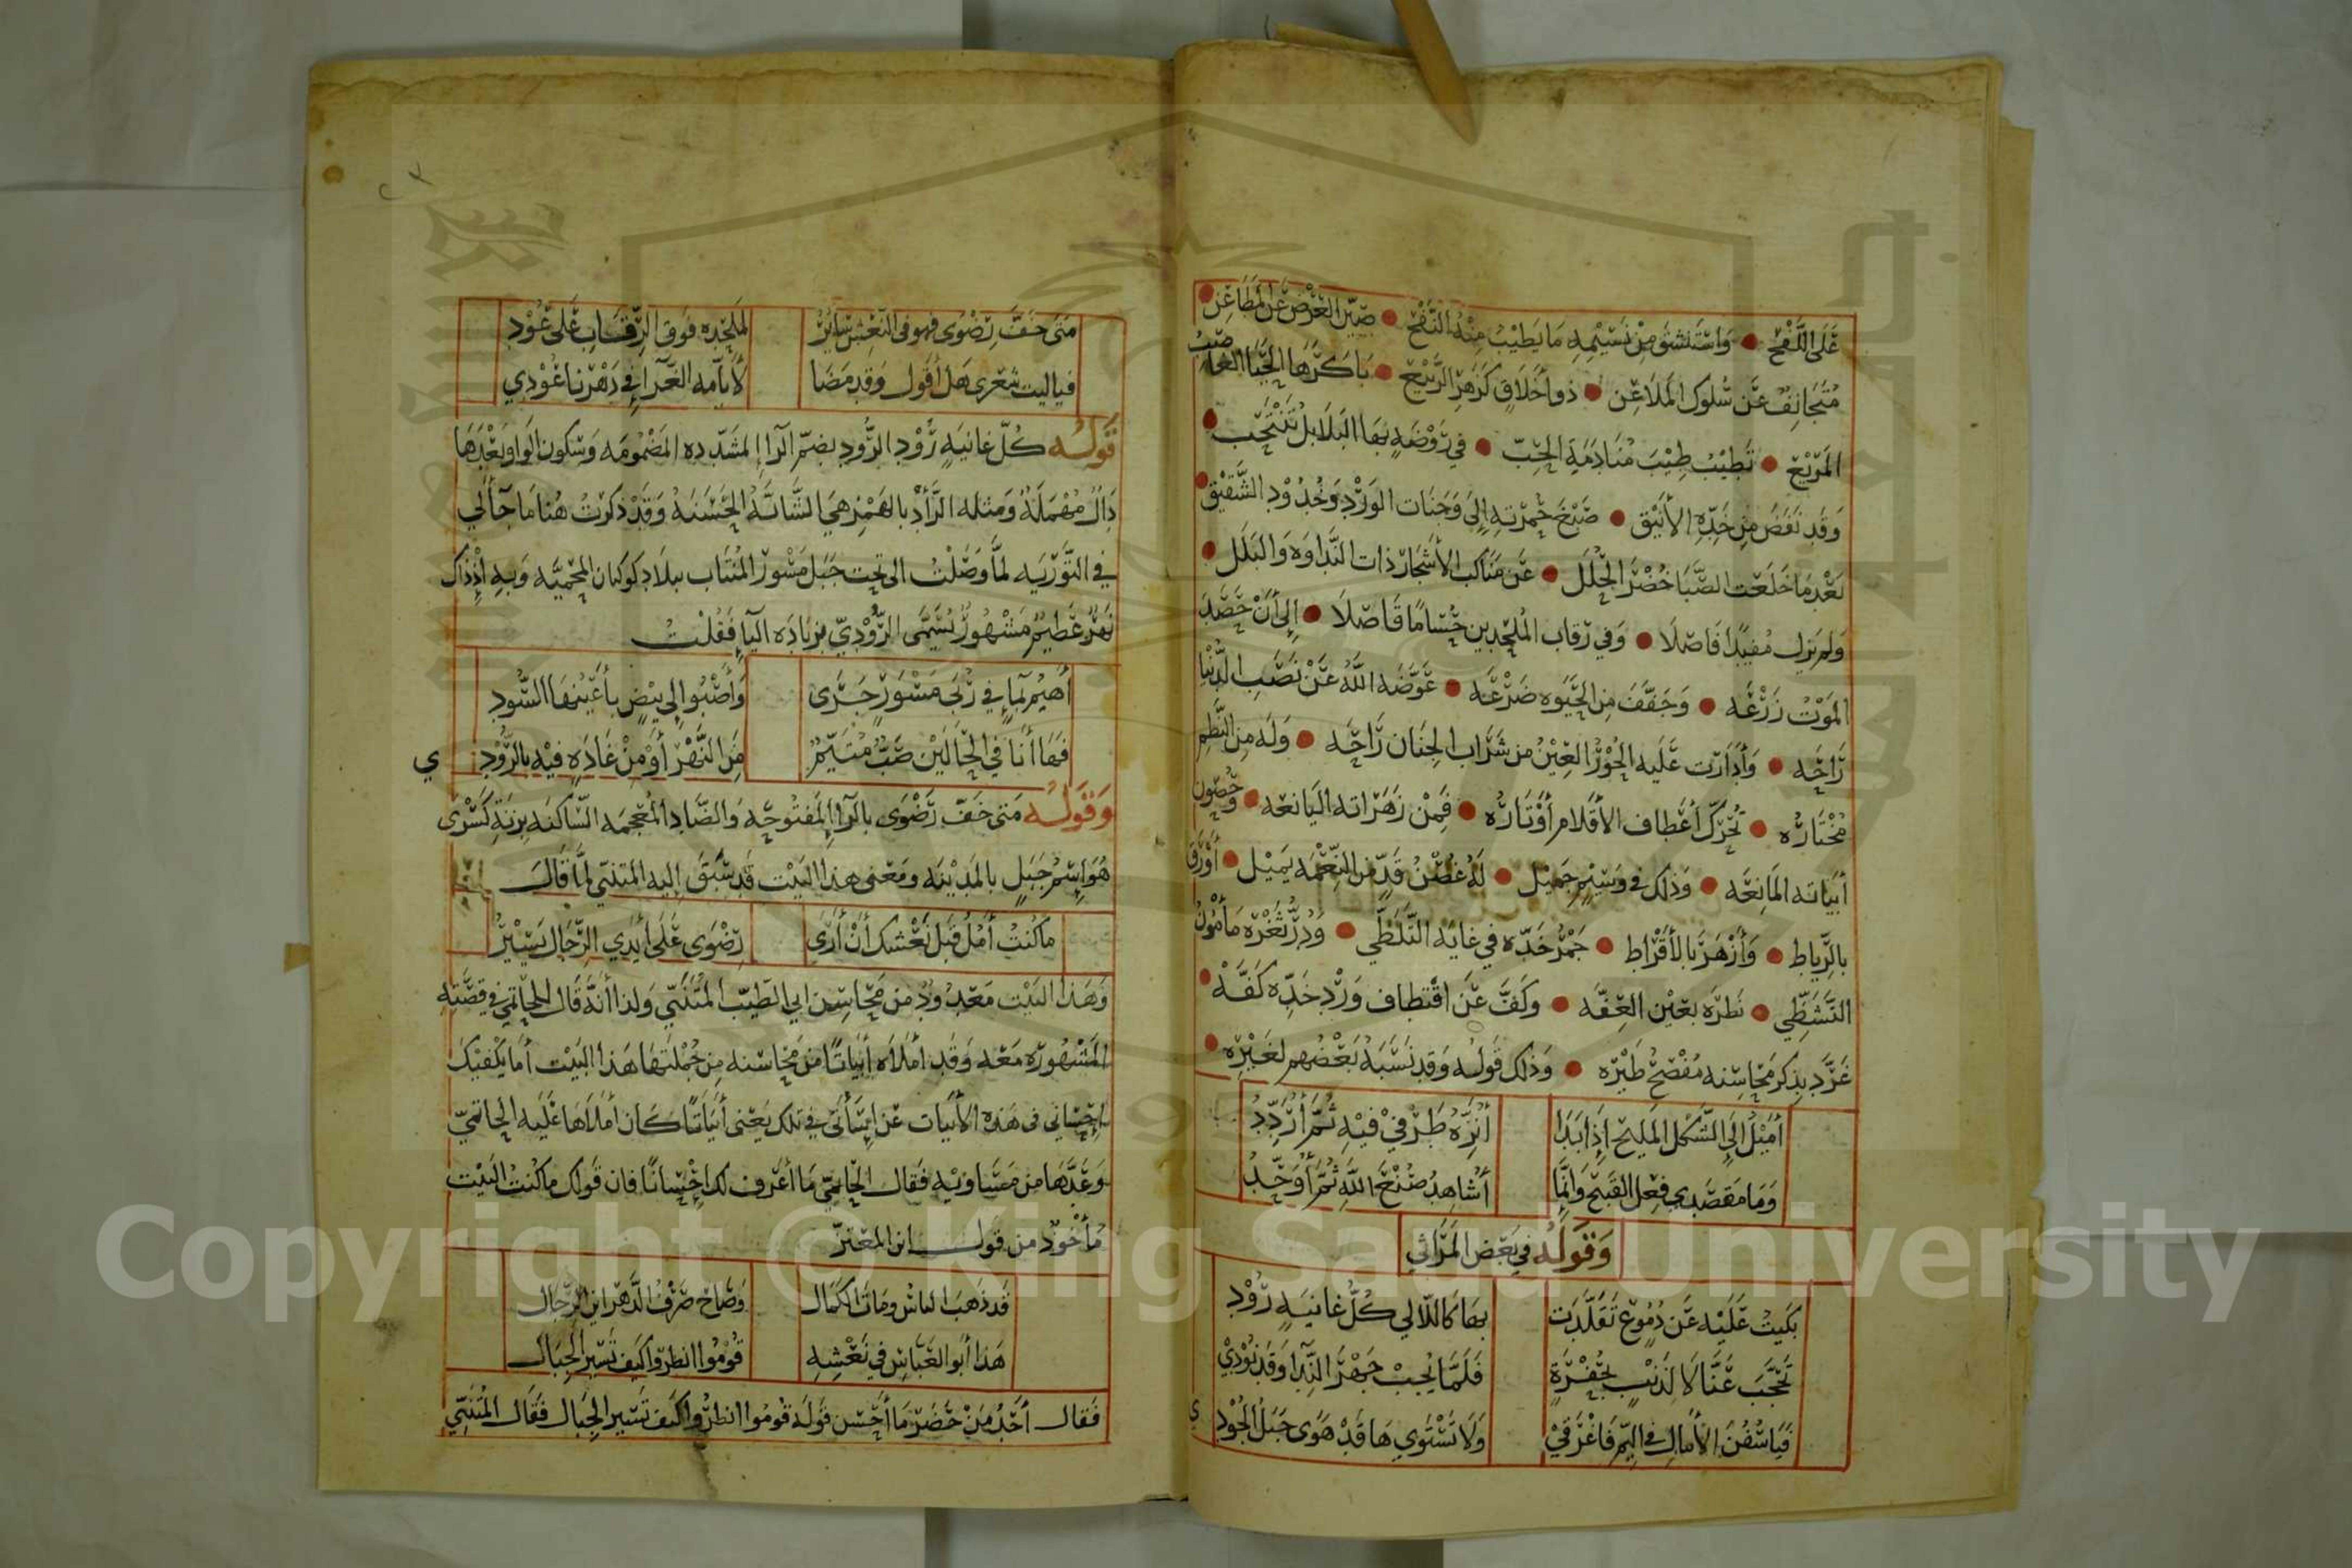 عَلَى اللَّفْح ● وَاسْتَنشق مِنْ نَسِيْمِهِ مَا يَطِيْبُ مِنْهُ النَّفْح ● صَيّن العَرْض عَن المَطَاعِن ●
مُتَجَانِفٌ عَن سُلوك المَلَاعِن ● ذو اخَلَاقٍ كَزَهرِ الرَّبِيْع ● بَاكَرَهَا الحَيَا
المَرَيْع ● تَطِيْبُ طِيْبَ مُنَادَمَةِ الحِبّ ● في رَوْضَةٍ بهَا البَلَابل تَنْتَحِب ●
وَقد نفَضَ مِن خَدِّهِ الأَنِيْق ● صَبْغَ خمرَتهِ إِلَى وَجَنَات الوَرْدِ وَخُدُوْدِ الشَّقِيْق ●
بَعْدِ مَا خَلَعَت الصَّبَا خُضْرَ الحُلَل ● عَن مَنَاكب الأَشجَار ذات النَّدَاوَه وَالبَلَل ●
وَلم يَزل مُفيدًا فَاصلَا ● وَفي رقاب المُلحِدين حُسَامًا قَاصلَا ● إِلى أَنْ حَصَدَ
المَوْتُ زَرْعَه ● وَجَفَّفَ مِن الحَيَوه ضَرْعَه ● عَوَّضَه اللَّهُ عَنْ نَصَبِ الدُّنيَا
رَاحَه ● وَأَدَارَت عَلَيه الحُوْرُ العِيْنُ من شَرَاب الجِنَان رَاحَه ● وَلَه مِن النَّظمِ
مُخْتَارُه ● تُحَرِّكُ أَعْطاف الأَقلَام أَوْتَارُه ● فَمِنْ زَهَرَاته اليَانعَه ● وَحُصُون
أَبيَاته المَانِعَه ● وَذلك في وَسِيْمٍ جَميْل ● لَهُ غُصْنُ قَدٍّ من النِّعْمَه يَميْل ● أَوْرَقَ
بالرِّيَاط ● وَأَزْهَرَ بالأَقْرَاط ● جَمْرُ خَدّه في غايَة التَّلَظّي ● وَدُرُّ ثَغْرَه مَأمُونُ
التَّشَظِّي ● نَظرَه بعَيْن العِفَّه ● وَكَفَّ عَن اقْتطاف وَرْدِ خَدِّه كَفَّه ●
غَرَّدَ بذِكر مَحَاسِنه مُفْصِحُ طَيْرَه ● وَذلك قَولُه وَقد نَسَبَهُ بَعْضُهم لغَيْرِه ●
أَمِيْلُ إِلَى الشَّكل المَليح إِذَا بَدَا أُنَزِّهُ طَرْفِيْ فِيْهِ ثُمَّ أُرَدِّدُ
وَمَا مَقصَدِي فِعْل القَبيح وَإِنَّمَا أُشَاهِدُ صُنْعَ اللَّهِ ثُمَّ أُوَحِّدُ
وَقَولُه في بَعْض المَرَاثي
بَكَيتُ عَلَيْهِ عَن دُمُوعٍ تَقَلَّدَت بهَا كَاللّآلي كُلُّ غانيَةٍ رُوْدِ
تَحَجَّبَ عَنَّا لَا لِذَنْبٍ بحُفْرَةٍ فَلَمَّا يُجِبْ جَهْرَ النِّدَا وَقَد نُوْدِيْ
فَيَا سُفُنَ الأَمَالِ في اليَمِّ فَاغْرَقِيْ وَلَا تَسْتَوِي هَا قَدْ هَوَى جَبَلُ الجُوْد
ي
مَتى خَفَّ رَضْوَى فهو في النَّعْش سَائرٌ لمَلْحَده فَوقَ الرِّقَابِ عَلَى عُوْدِ
فيَاليت شعْرى هَل أَقول وَقد مَضَا لأَيَّامه الغَرّا في دَهْرنا عُوْدِي
قَولُه كُلّ غانيَةٍ رُوْدِ الرُّودِ بضمّ الرّا المشَدّده المَضْمُومَه وَسُكون الوَاو بَعْدَهَا
دَالٌ مُهْمَلَةٌ وَمثله الرَّأْد بالهَمْز هيَ الشَّابَّةُ الحَسَنَهُ وَقَدْ ذكرْتُ هُنا مَا جَآ لي
في التَّوْرَيَه لمَّا وَصَلْتُ الى تحت جَبَل مَسْوَر المُنْتَاب ببلَاد كوكبان المحْميَّه وَبهِ إِذْذَاك
نَهرٌ عَظيمٌ مَشْهُورٌ يُسَمَّى الرُّوْديّ بزيَادَه اليَا فَقُلْتُ
أَهيْمُ لِمَاءٍ في رُبَى مَسْوَرٍ جَرَى وَأَصْبُوا إِلى بيْضٍ بأَعْيُنهَا السُّودِ
فَهَا أَنَا في الحَالَيْن صَبٌّ مُتَيَّمٌ مِنَ النَّهْرِ أَوْ مِنْ غَادَةٍ فيْه بالرُّوْدِ
ي
وَقَولُه مَتى خَفّ رَضْوَى بالرّا المَفتُوحَه وَالضَّادِ المُعْجمَه السَّاكنَه بزنَةِ كَسْرَى
هُوَ اسْمُ جَبَلٍ بالمَديْنَه وَمَعْنى هذا البَيْت قَد سَبَقَ إِليه المتَنبّي لمَّا قَالَ
مَا كُنتُ آمُلُ قَبل نَعْشكَ أَنْ أَرَى رَضْوَى عَلَى أَيْدي الرِّجَال يَسِيْرُ
وَهَذا البَيْت مَعْدُوْدٌ من مَحَاسِن ابي الطيّب المُتَنَبّي وَلذا أنَّهُ قَال للحَاتِمي في قصَّتهِ
المَشْهُورَه مَعَه وَقد أَملَاه أَبيَاتًا من مَحَاسنه مِن جُمْلَتهَا هَذا البَيْت أَمَا يَكْفيْكَ
احْسَاني في هَذه الأَبيَات عن إِسَأتي في تلك يَعْني أَبيَاتًا كَان أَملَاهَا عَلَيه الحَاتميّ
وَعَدَّهَا من مَسَاوئه فَقال الحَاتميّ مَا أعْرف لك احْسَانًا فان قَولك مَا كنْتُ البَيْت
مَأخُوْذ من قول ابن المعْتزّ
قَد ذَهَبَ النَّاسُ وَمَاتَ الكَمَال وَصَاحَ صَرْفُ الدَّهْر اين الرِّجَال
هَذا أَبُو العَبَّاسِ في نَعْشِهِ قُوْمُوا انظرُوا كَيف تَسِيْر الجِبَال
فَقال أَحَدُ مَنْ حَضَرَ مَا أَحْسَن قَولَهُ قُومُوا انظرُوا كَيف تَسِيْر الجِبَال فَقَال المُتَنَبّي
Copyright © King Saud University